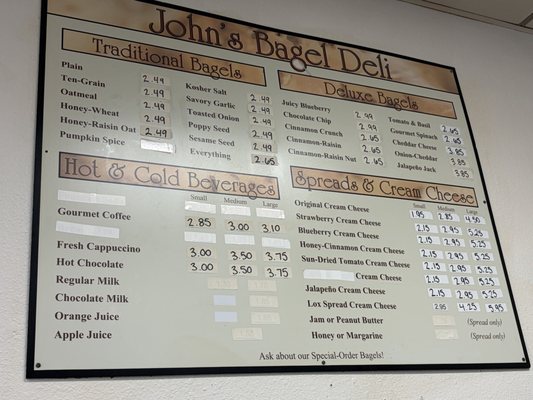 John's Bagel Deli
Traditional Bagels
Plain 2.49
Ten-Grain 2.49
Oatmeal 2.49
Honey-Wheat 2.49
Honey-Raisin Oat 2.49
Pumpkin Spice
Kosher Salt 2.49
Savory Garlic 2.49
Toasted Onion 2.49
Poppy Seed 2.49
Sesame Seed 2.49
Everything 2.65
Deluxe Bagels
Juicy Blueberry 2.99
Chocolate Chip 2.99
Cinnamon Crunch 2.65
Cinnamon-Raisin 2.65
Cinnamon-Raisin Nut 2.65
Tomato & Basil 2.65
Gourmet Spinach 2.65
Cheddar Cheese 3.85
Onion-Cheddar 3.85
Jalapeño Jack 3.85
Hot & Cold Beverages
Small Medium Large
Gourmet Coffee 2.85 3.00 3.10
Fresh Cappuccino 3.00 3.50 3.75
Hot Chocolate 3.00 3.50 3.75
Regular Milk
Chocolate Milk
Orange Juice
Apple Juice
Spreads & Cream Cheese
Small Medium Large
Original Cream Cheese 1.95 2.85 4.50
Strawberry Cream Cheese 2.15 2.95 5.25
Blueberry Cream Cheese 2.15 2.95 5.25
Honey-Cinnamon Cream Cheese 2.15 2.95 5.25
Sun-Dried Tomato Cream Cheese 2.15 2.95 5.25
Cream Cheese 2.15 2.95 5.25
Jalapeño Cream Cheese 2.15 2.95 5.25
Lox Spread Cream Cheese 2.95 4.25 5.95
Jam or Peanut Butter (Spread only)
Honey or Margarine (Spread only)
Ask about our Special-Order Bagels!